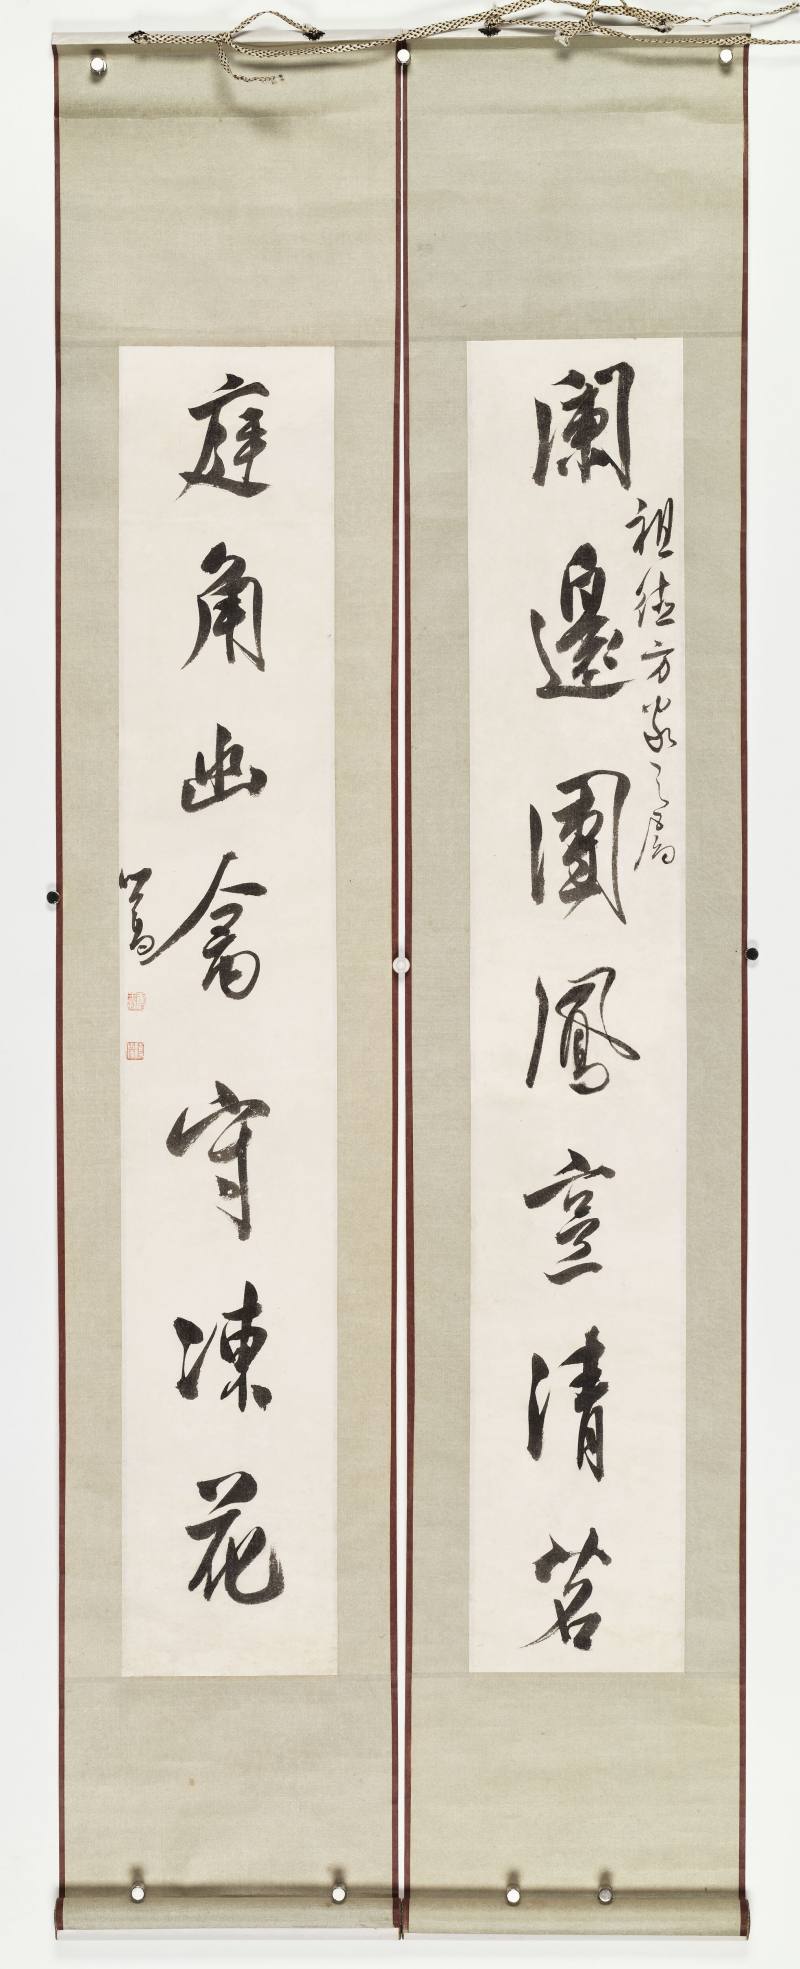 闌邊團鳳烹清茗
祖德方家之屬
庭角幽禽守凍花
心畬